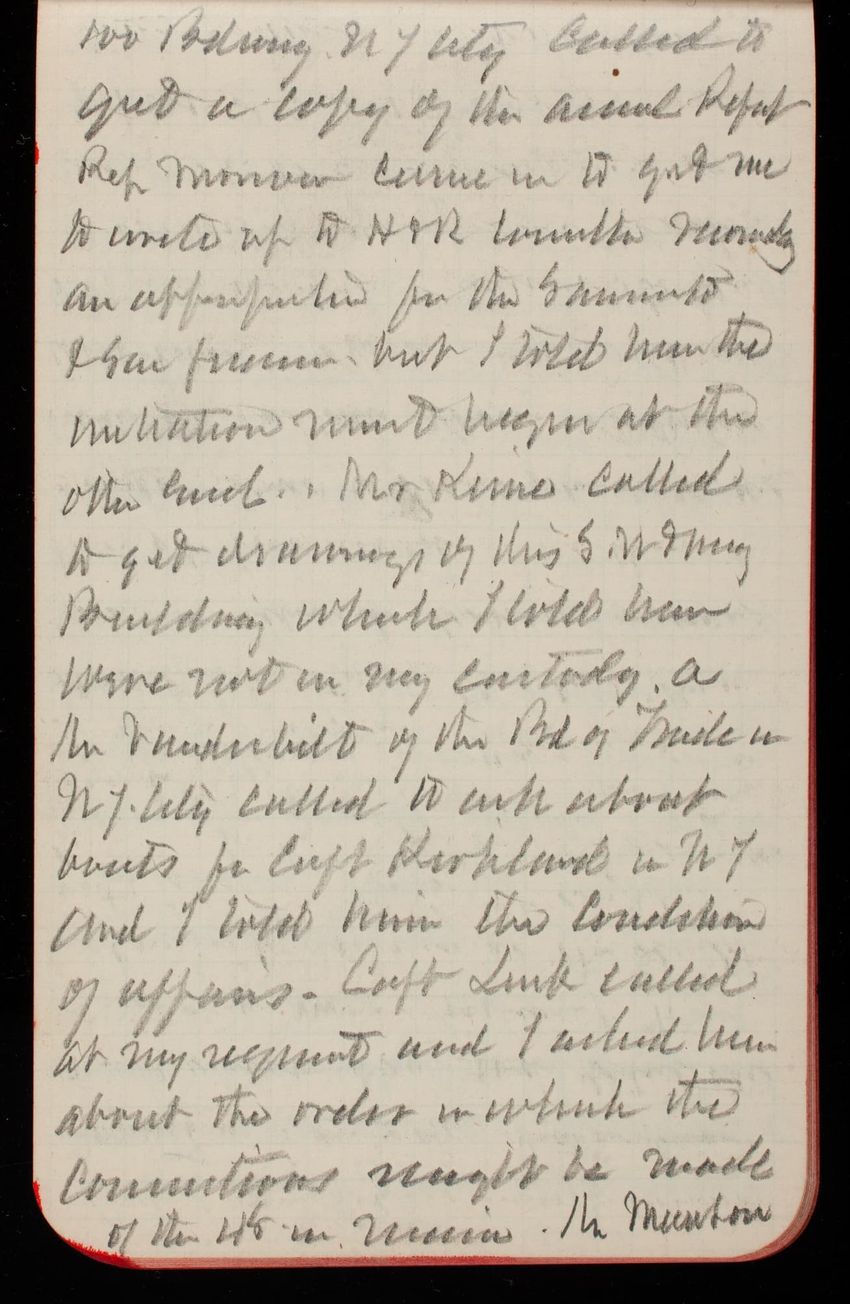 Bdway N Y City Called to
get a copy of the annual Report
Rep came in to get me
to write up to H of R
an for the
but I told him the
initiation must begin at the
other end. Mr Kline called
to get drawings of this
Building which I told him
were not in my custody. a
Mr Vanderbilt of the Bd of Trade in
N Y. City called to ask about
boats for Capt Kirkland in N Y
and I told him the condition
of affairs - Capt Lusk called
at my request and I asked him
about the order in which the
connections might be made
of the in